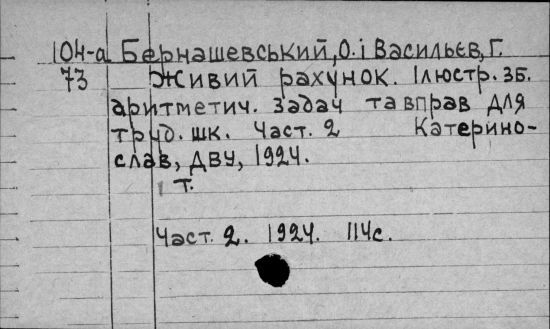 104-а Бернашевський, О. і Васильєв, Г.
73 Живий рахунок. Ілюстр. зб.
аритметич. задач та вправ для
труд. шк. Част. 2 Катерино-
слав, ДВУ, 1924.
1 т.
Част. 2. 1924. 114с.